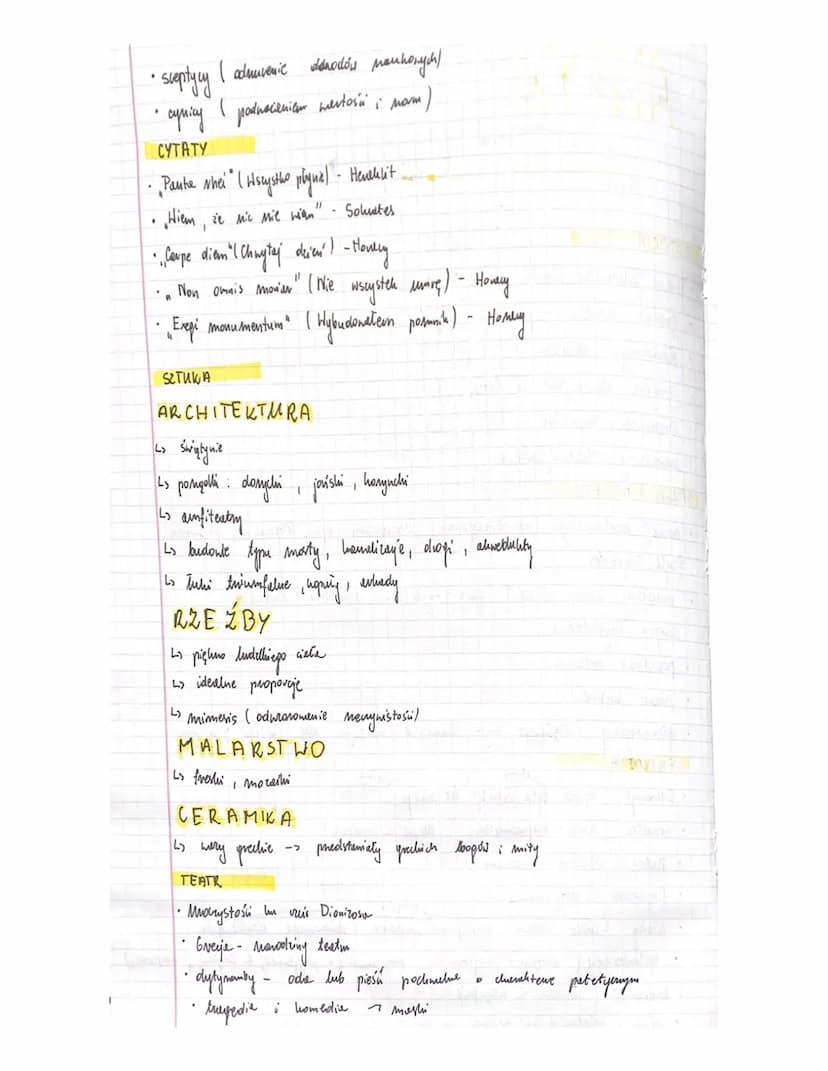 • sceptycy ( odrzucenie dowodów naukowych)
• cynicy ( podważeniem wartości i norm)
CYTATY
• „Panta rhei" (Wszystko płynie) - Heraklit
• „Wiem, że nic nie wiem" - Sokrates
• „Carpe diem" (Chwytaj dzień) - Horacy
• „Non omnis moriar" (Nie wszystek umrę) - Horacy
• „Exegi monumentum" (Wybudowałem pomnik) - Horacy
SZTUKA
ARCHITEKTURA
↳ świątynie
↳ porządki : dorycki , joński , koryncki
↳ amfiteatry
↳ budowle typu mosty, kanalizacje, drogi , akwedukty
↳ łuki triumfalne , kopuły, arkady
RZEŹBY
↳ piękno ludzkiego ciała
↳ idealne proporcje
↳ mimesis ( odwzorowanie rzeczywistości)
MALARSTWO
↳ freski , mozaiki
CERAMIKA
↳ wazy greckie -> przedstawiały greckich bogów i mity
TEATR
• Uroczystości ku czci Dionizosa
• Grecja - narodziny teatru
• dytyramby - oda lub pieśń pochwalna o charakterze patetycznym
• tragedia i komedia → maski